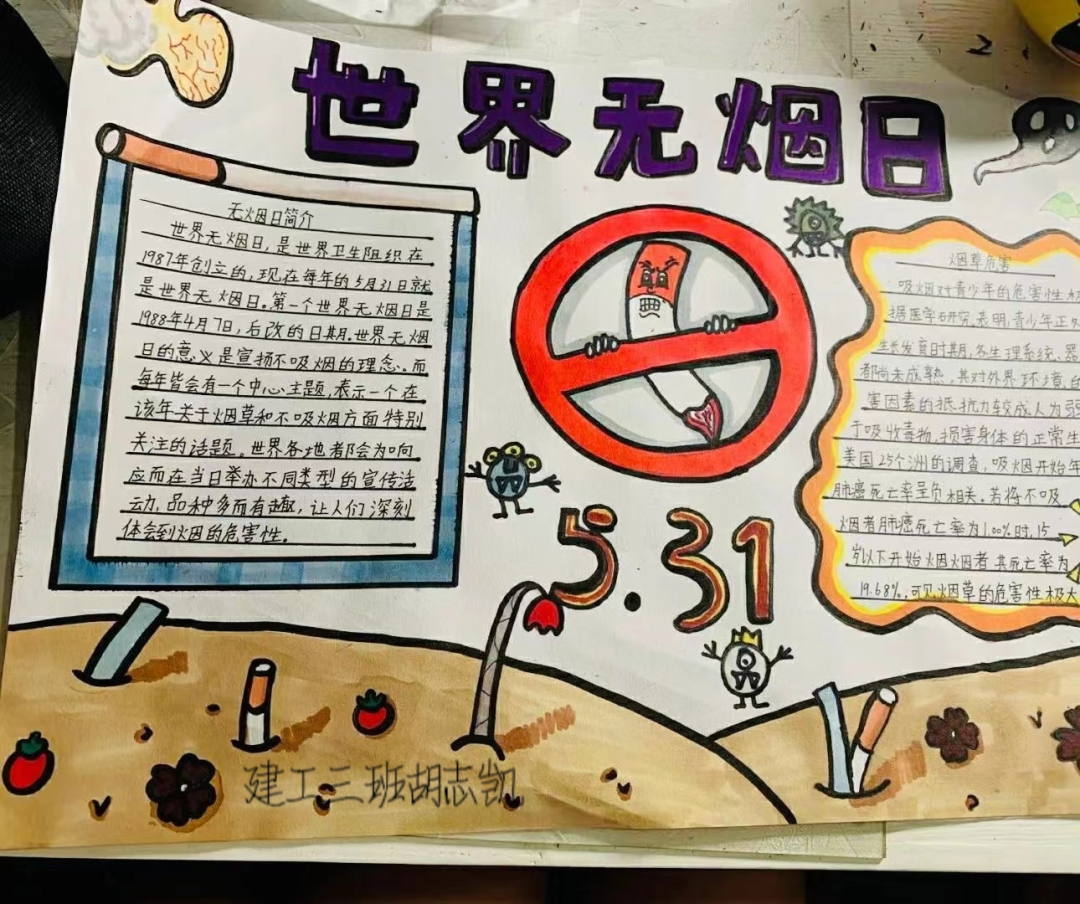 世界无烟日
无烟日简介
世界无烟日,是世界卫生组织在
1987年创立的,现在每年的5月31日就
是世界无烟日。第一个世界无烟日是
1988年4月7日,后改的日期.世界无烟
日的意义是宣扬不吸烟的理念。而
每年皆会有一个中心主题,表示一个在
该年关于烟草和不吸烟方面特别
关注的话题。世界各地都会为响
应而在当日举办不同类型的宣传活
动,品种多而有趣,让人们深刻
体会到烟的危害性。
5.31
烟草危害
吸烟对青少年的危害性极
据医学研究表明,青少年正处
生长发育时期,各生理系统、器
都尚未成熟,其对外界环境的
害因素的抵抗力较成人为弱
于吸收毒物,损害身体的正常生
美国25个洲的调查,吸烟开始年
肺癌死亡率呈负相关,若将不吸
烟者肺癌死亡率为1.00%时,15
岁以下开始烟烟者其死亡率为
19.68%,可见烟草的危害性极大
建工三班胡志凯